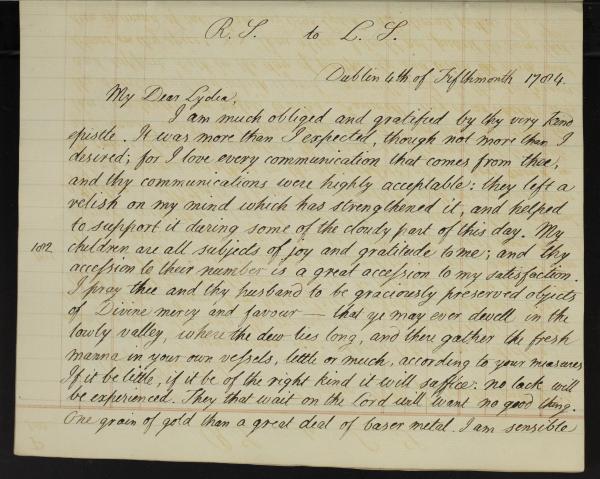 R. S. to L. S.
Dublin 4th of Fifthmonth 1784.
My Dear Lydia,
I am much obliged and gratified by thy very kind
epistle. It was more than I expected, though not more than I
desired; for I love every communication that comes from thee,
and thy communications were highly acceptable: they left a
relish on my mind which has strengthened it, and helped
to support it during some of the cloudy part of this day. My
182 children are all subjects of joy and gratitude to me; and thy
accession to their number is a great accession to my satisfaction.
I pray thee and thy husband to be graciously preserved objects
of Divine mercy and favour — that ye may ever dwell in the
lowly valley, where the dew lies long, and there gather the fresh
manna in your own vessels, little or much, according to your measures
If it be little, if it be of the right kind it will suffice: no lack will
be experienced. They that wait on the Lord will want no good thing.
One grain of gold than a great deal of baser metal. I am sensible